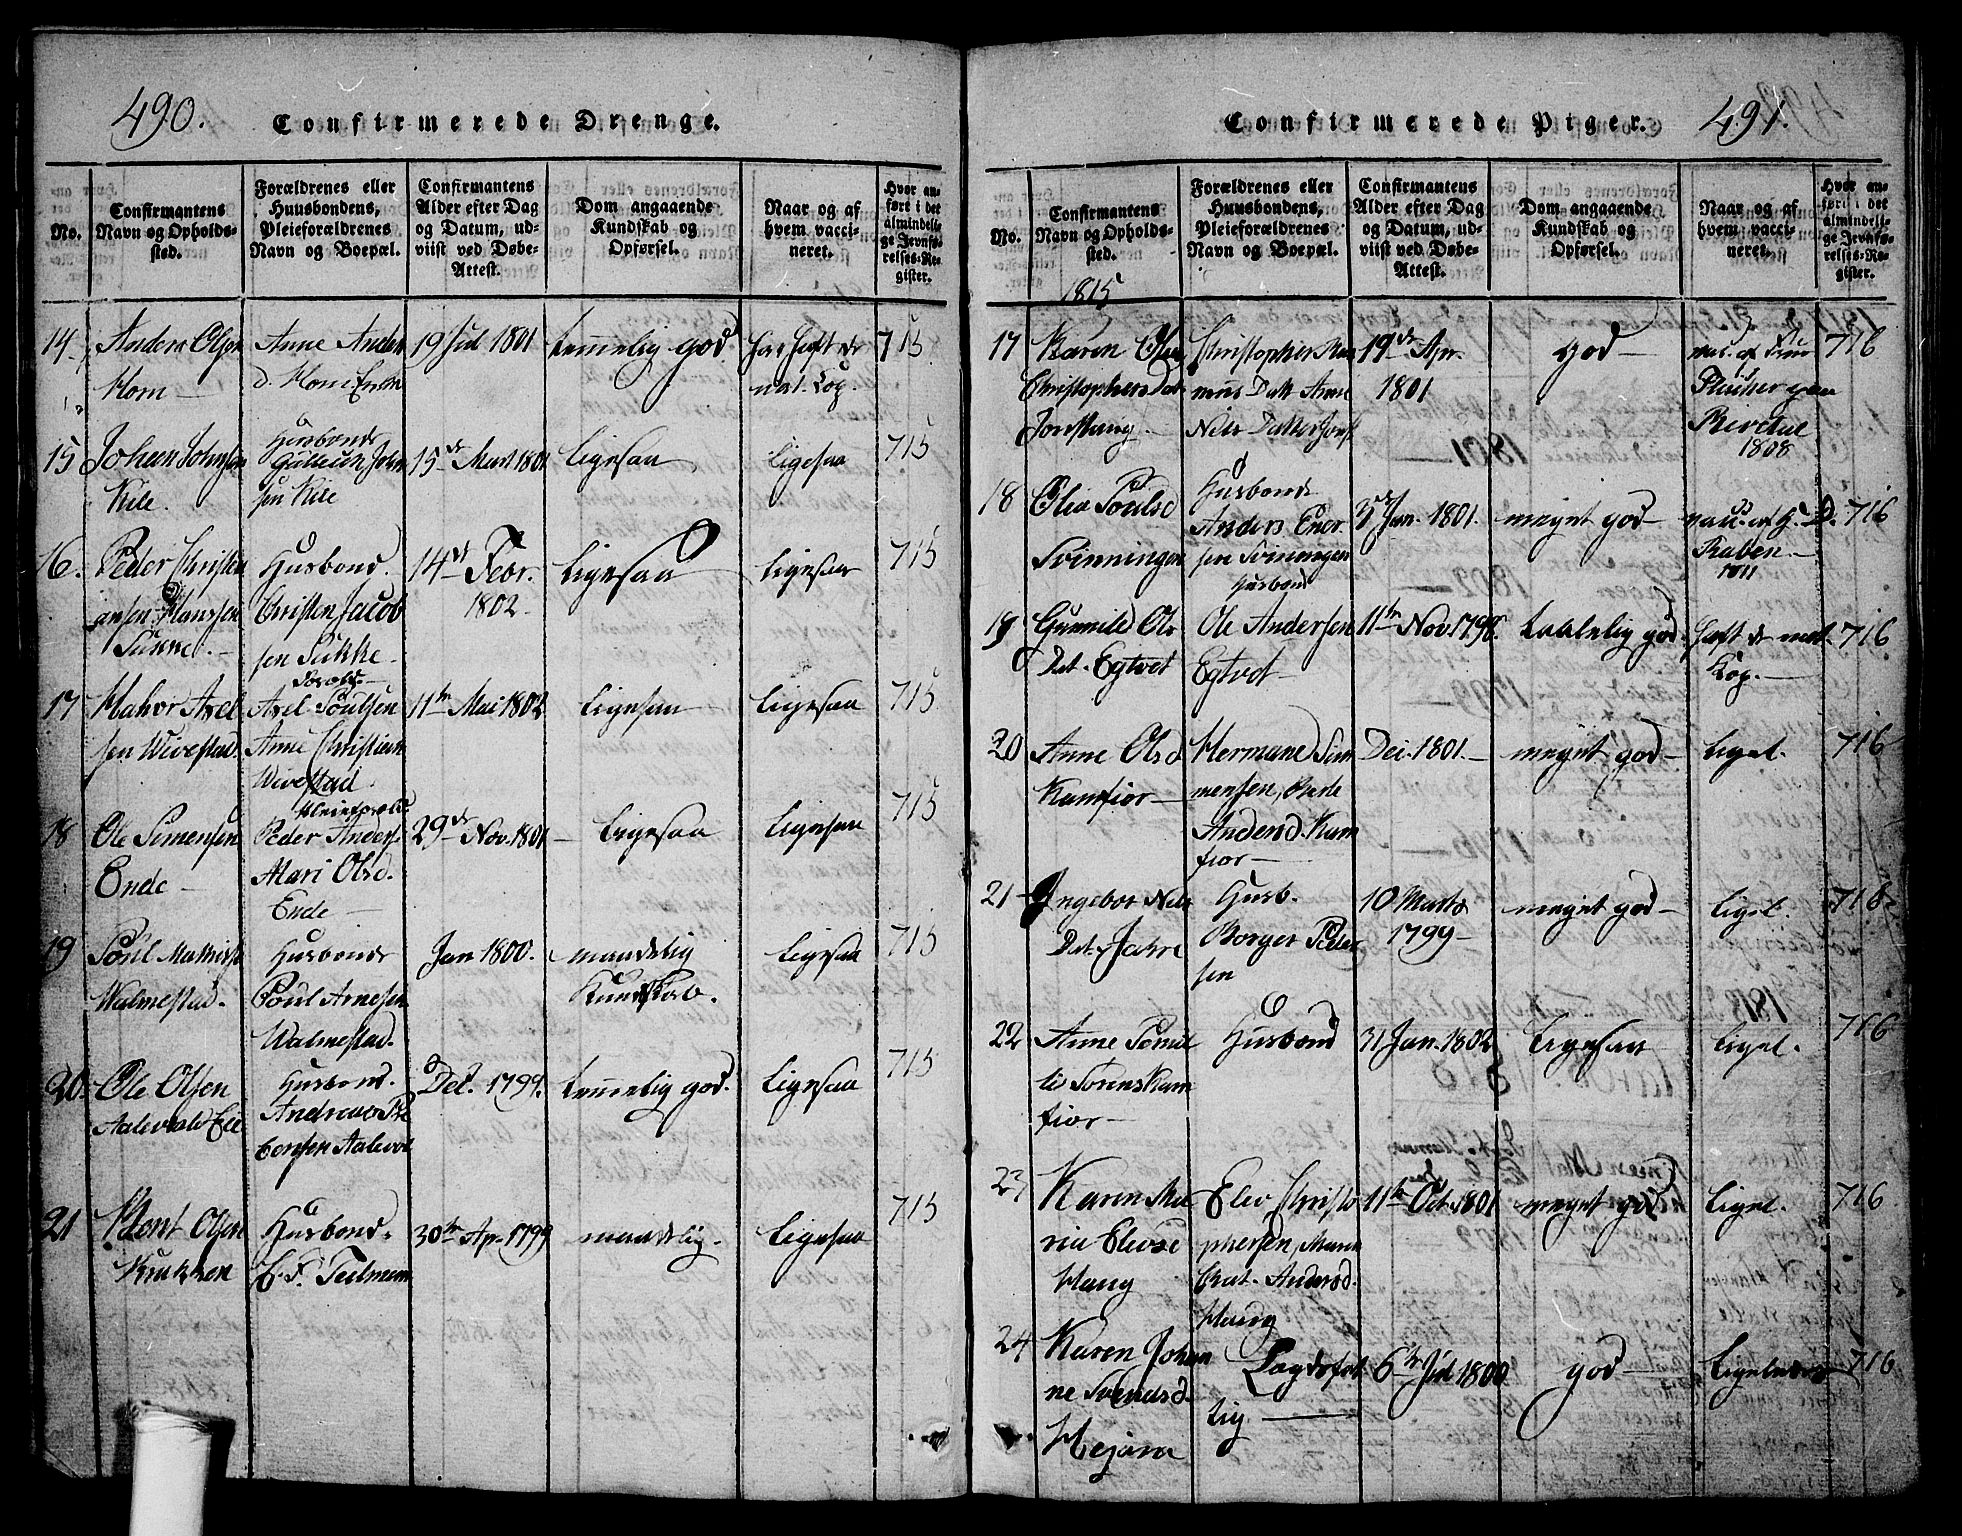 490.
Confirmerede Drenge.
No.
Confirmantens Navn og Opholdssted.
Forældrenes eller Huusbondens, Pleieforældrenes Navn og Boepæl.
Confirmantens Alder efter Dag og Datum, udviist ved Døbe-Attest.
Dom angaaende Kundskab og Opførsel.
Naar og af hvem vaccineret.
Hvor anført i det almindelige Jevnførelses-Register.
14
Anders Olsen
Horn
Anne Anders
d. Horn Enke
19 Jul 1801
temmelig god
har haft de
nat. Kop.
715
15
Johan Johnsen
Kile.
Husbonde
John
sen Kile
15de Mart 1801
Ligesaa
Ligesaa
715
16.
Peder Christen
Hanssen
Husbond.
Christen Jacob
sen Sukke.
14de Febr.
1802
Ligesaa
Ligesaa
715
17
Halvor Axel
sen Wivestad.
Foræld.
Axel Poulsen
Anne Christiens
Wivestad
11te Mai 1802
Ligesaa
Ligesaa
715
18
Ole Simensen
Ende
Pleieforæld.
Peder Anders.
Mari Olsd.
Ende
29de Nov. 1801
Ligesaa
Ligesaa
715
19
Poul
Walmestad.
Husbonde
Poul Arnesen
Walmestad.
Jan 1800.
maadelig
Kundskab.
Ligesaa
715
20.
Ole Olsen
Aalevald Eie
Husbond.
Andreas Pe
tersen Aalevol
Dec. 1799.
temmelig god.
Ligesaa
715
21
Olsen
Krukken
Husbond.
C. F. Teilmann
30te Apr. 1799
maadelig.
Ligesaa
715
491.
Confirmerede Piger.
No.
Confirmantens Navn og Opholdssted.
Forældrenes eller Huusbondens, Pleieforældrenes Navn og Boepæl.
Confirmantens Alder efter Dag og Datum, udviist ved Døbe-Attest.
Dom angaaende Kundskab og Opførsel.
Naar og af hvem vaccineret.
Hvor anført i det almindelige Jevnførelses-Register.
1815
17
Karen
Christophersdat
Christopher
mus Datt Anne
Nils Datter
19de Apr.
1801
god
vac. af
1808
716
18
Olia Poulsd
Svinningen
Husbond
Anders Ener
sen Svinningen
3de Jan. 1801.
meget god
vacc. af H. D.
Raben.
1811
716
19
Gunnild Ols
Dat. Egtvet
Husbond
Ole Andersen
Egtvet
11te Nov. 1798.
taalelig god.
haft de nat.
Kop.
716
20
Anne Olsd
Kamfior
Hermand Sim
mensen,
Andersd. Kam
fior
Dec. 1801.
meget god
Ligel.
716
21
Ingebor Nils
Dat. Jahre
Husb.
Borger Peder
sen
10 Marts
1799
meget god
Ligel.
716
22
Anne
Sørens Kam
fior
Husbond
31 Jan. 1802
Ligesaa
Ligel.
716
23
Karen Ma
ria Elevse
Haug
Elev Christo
phersen, Maren
Cat. Andersd.
Haug
11te Oct. 1801
meget god
Ligel.
716
24
Karen Johan
ne Svendsd.
Lægdsfat
tig
6te Jul 1800
god
Ligeledes
716